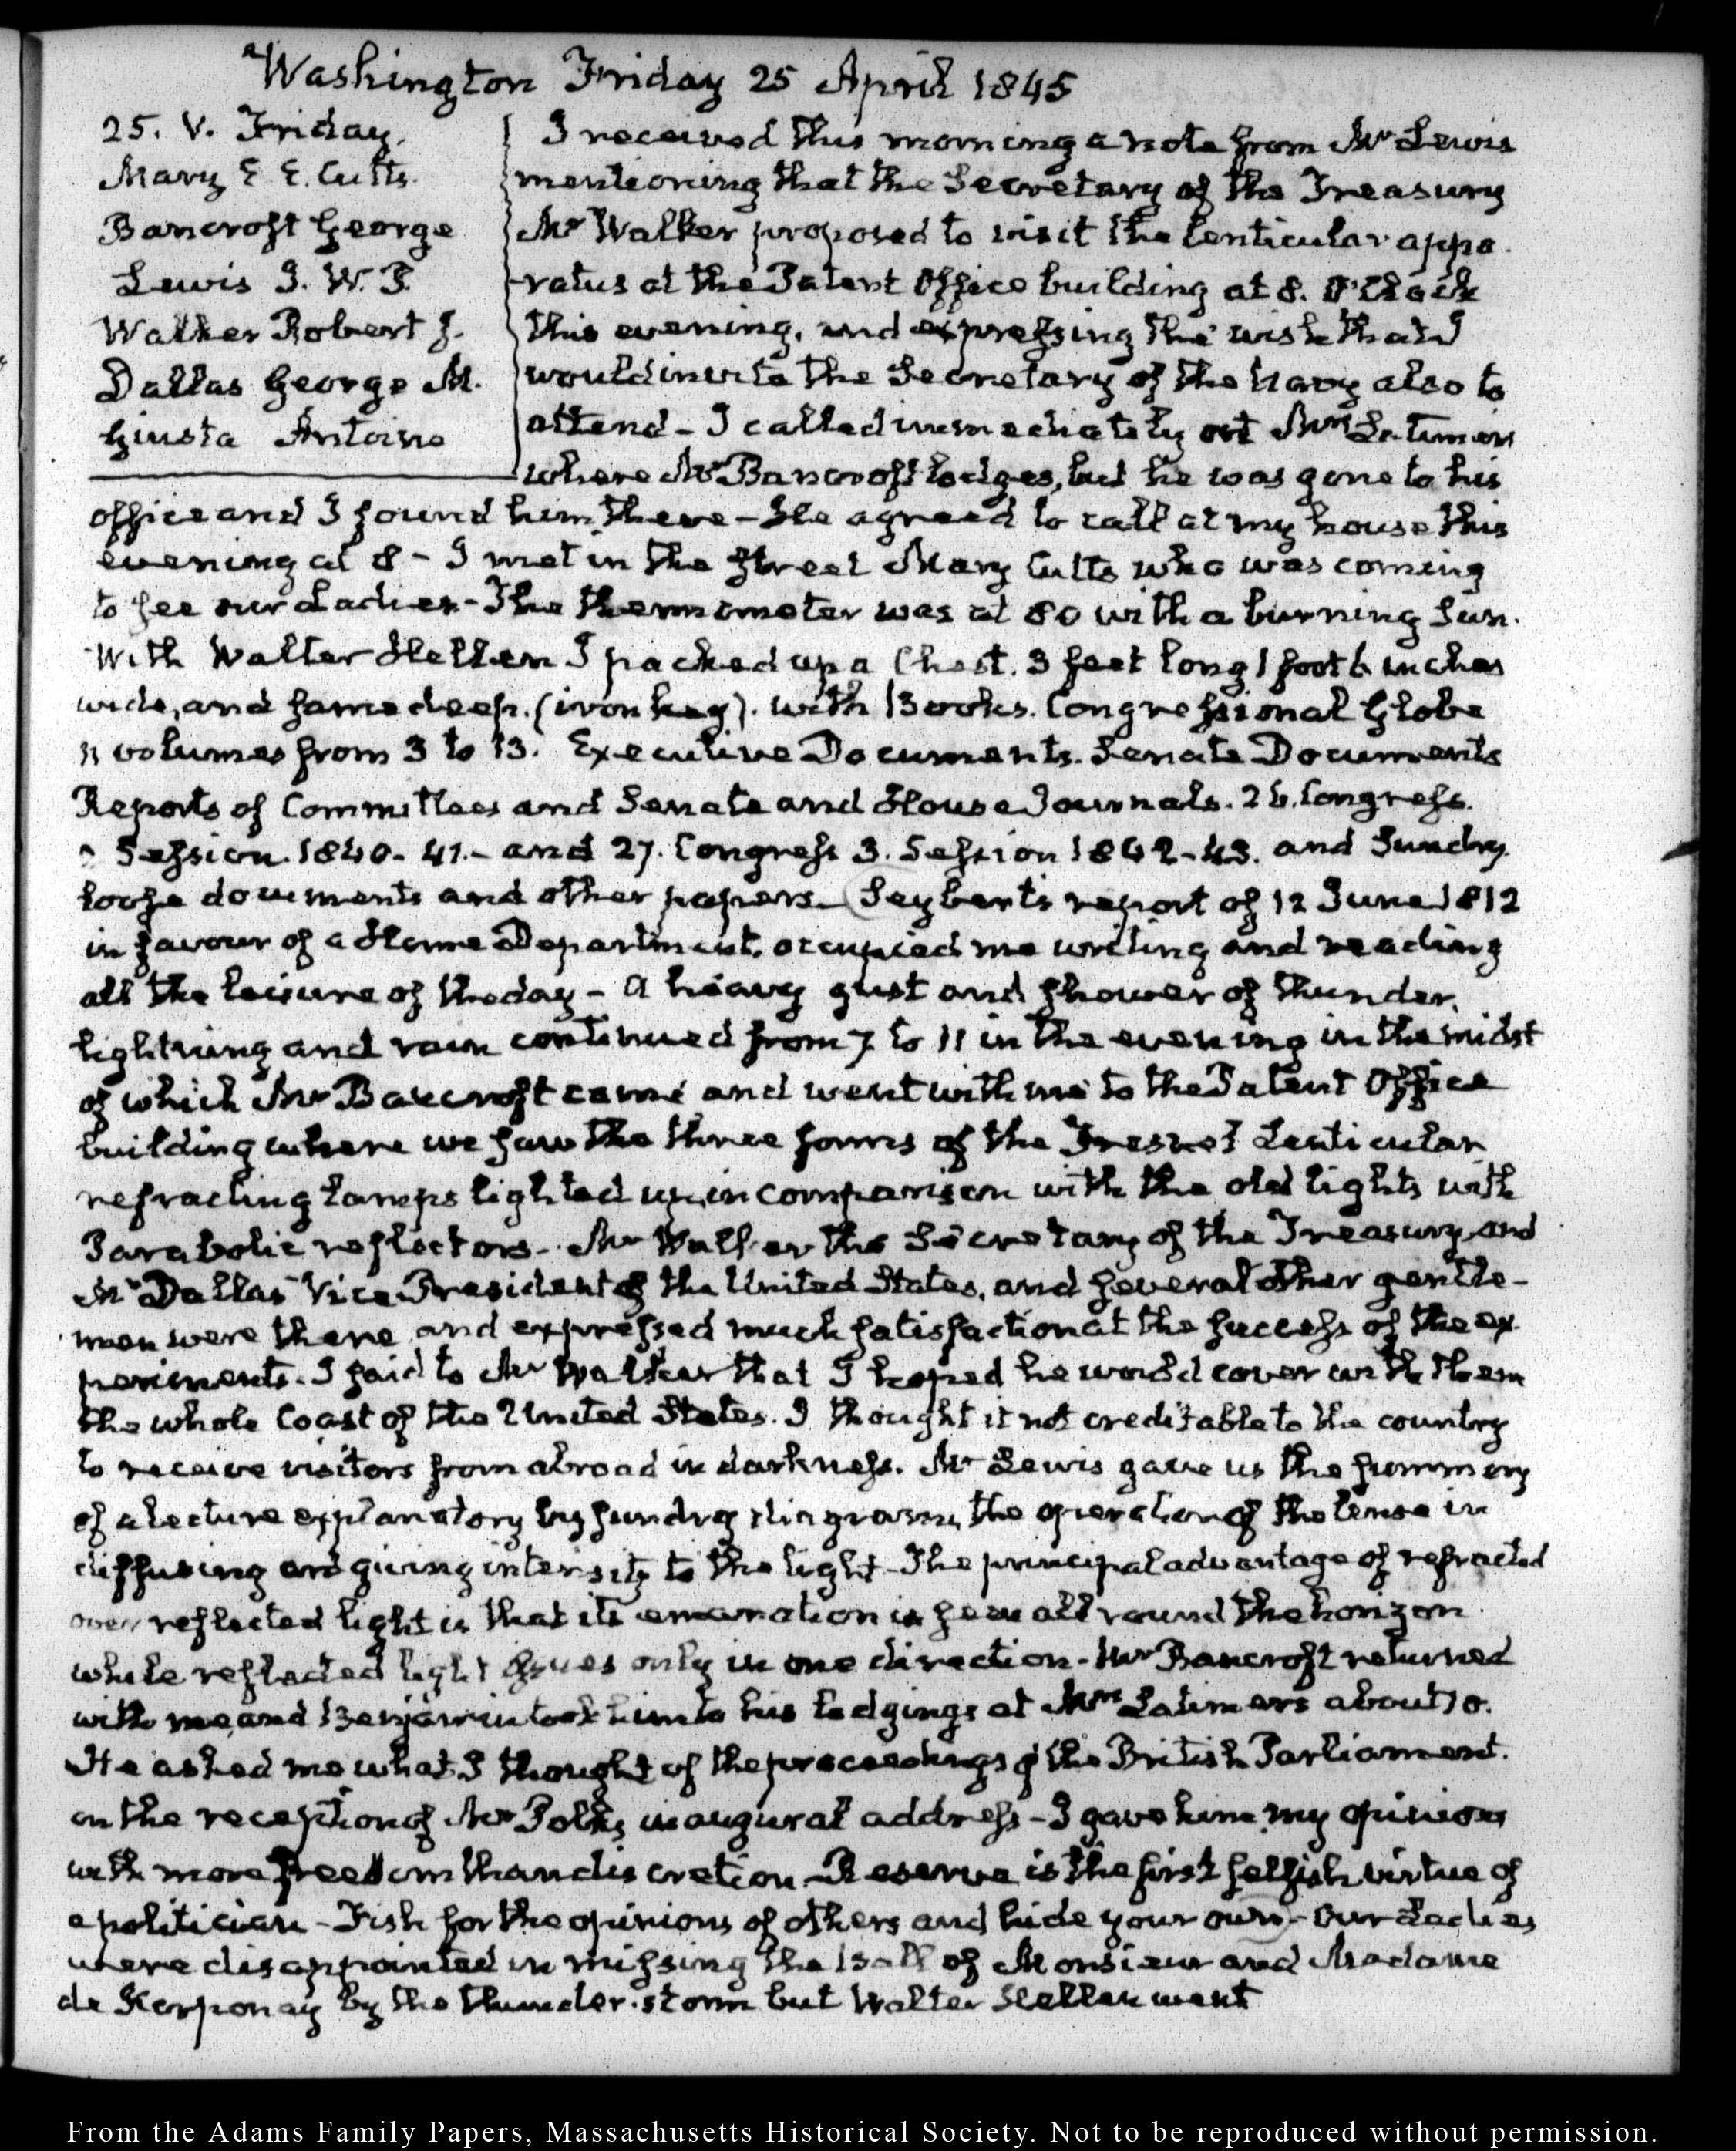 Washington Friday 25 April 1845
25. V. Friday.
Mary E E. Cutts.
Bancroft George
Lewis I. W. P.
Walker Robert J.
Dallas George M.
Giusta Antoine
I received this morning a note from Mr Lewis
mentioning that the Secretary of the Treasury
Mr Walker proposed to visit the lenticular appa-
ratus at the Patent Office building at 8. O'Clock
this evening, and expressing the wish that I
would invite the Secretary of the Navy also to
attend - I called immediately at Mrs Latimers
where Mr Bancroft lodges, but he was gone to his
office and I found him there - He agreed to call at my house this
evening at 8 - I met in the street Mary Cutts who was coming
to see our Ladies - The thermometer was at 80 with a burning Sun.
With Walter Hellen I packed up a Chest. 3 feet long 1 foot 6 inches
wide, and same deep. (iron key). with Books. Congressional Globe
11 volumes from 3 to 13. Executive Documents. Senate Documents
Reports of Committees and Senate and House Journals. 26. Congress.
Session. 1840-41. - and 27. Congress 3. Session 1842-43. and Sundry
loose documents and other papers - Seybert's report of 12 June 1812
in favour of a Home Department, occupied me writing and reading
all the leisure of the day - A heavy gust and shower of thunder,
lightning and rain continued from 7 to 11 in the evening in the midst
of which Mr Bancroft came and went with me to the Patent Office
building where we saw the three forms of the Fresnel Lenticular
refracting lamps lighted up, in comparison with the old lights with
Parabolic reflectors - Mr Walker the Secretary of the Treasury, and
Mr Dallas Vice President of the United States, and several other gentle-
men were there and expressed much satisfaction at the success of the ex-
periments. I said to Mr Walker that I hoped he would cover with them
the whole Coast of the United States. I thought it not creditable to the country
to receive visitors from abroad in darkness. Mr Lewis gave us the summary
of a lecture explanatory by sundry diagrams, the operation of the lense in
diffusing and giving intensity to the light - The principal advantage of refracted
over reflected light is that its emanation is seen all round the horizon
while reflected light issues only in one direction - Mr Bancroft returned
with me, and Benjamin took him to his lodgings at Mrs Latimers about 10.
He asked me what I thought of the proceedings of the British Parliament.
on the reception of Mr Polk's inaugural address - I gave him my opinions
with more freedom than discretion - Reserve is the first selfish virtue of
a politician - Fish for the opinions of others and hide your own - Our Ladies
were disappointed in missing the Ball of Monsieur and Madame
de Korponay by the thunder-storm but Walter Hellen went
From the Adams Family Papers, Massachusetts Historical Society. Not to be reproduced without permission.